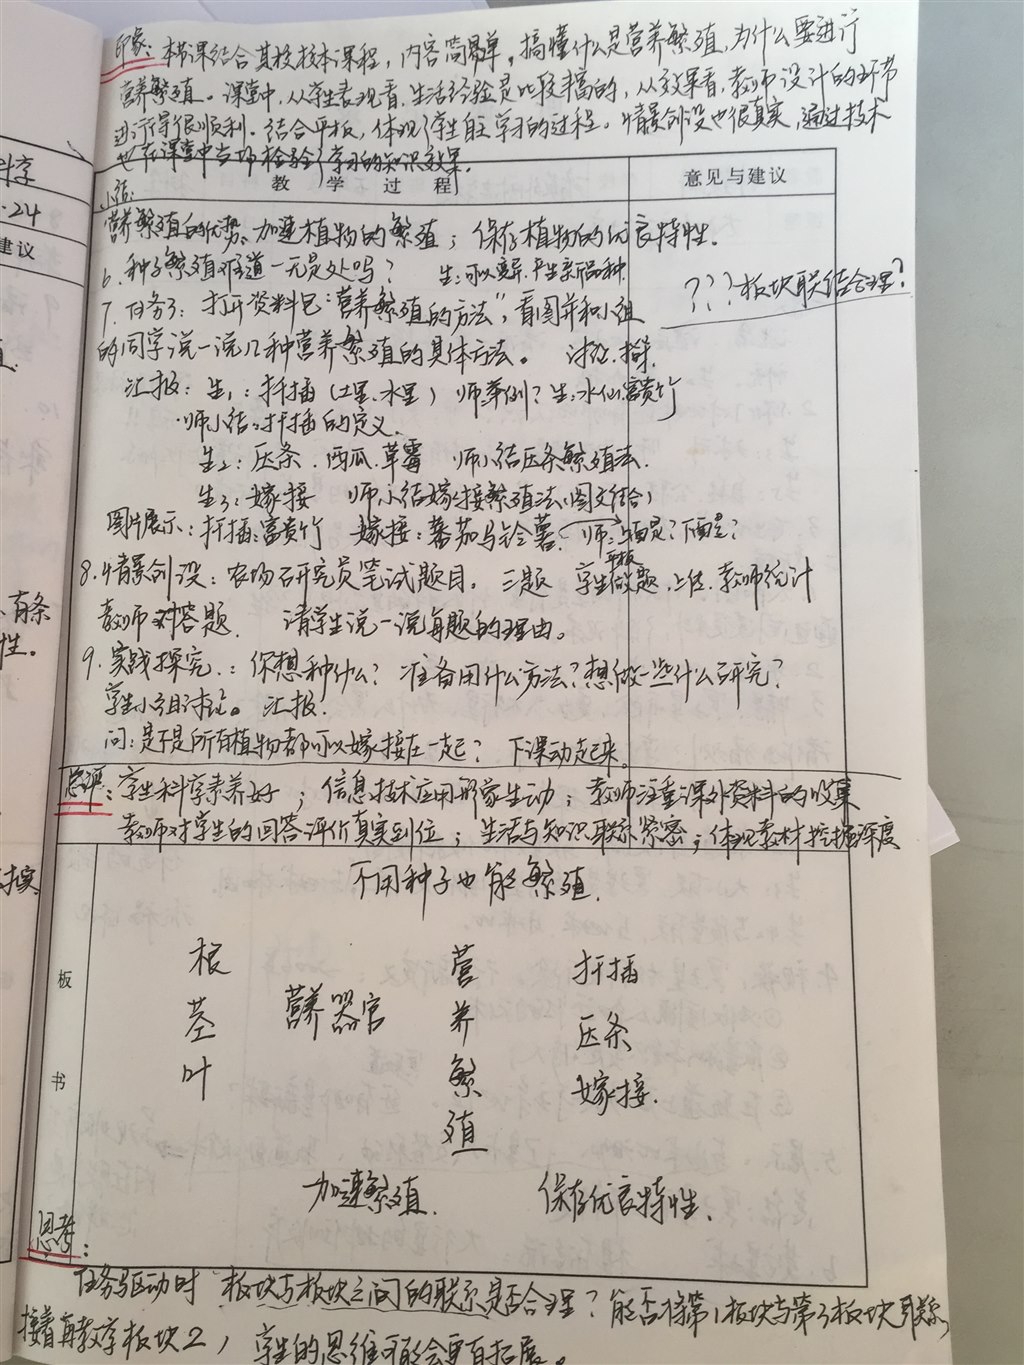 印象：本节课结合其校校本课程，内容简单，搞懂什么是营养繁殖，为什么要进行
营养繁殖。课堂中，从学生表现看，生活经验是比较丰富的，从效果看，教师设计的环节
进行得很顺利。结合平板，体现了学生自主学习的过程。情景创设也很真实，通过技术
也在课堂中当场检验了学习的知识效果。
教 学 过 程
意见与建议
小结：
营养繁殖的优势：加速植物的繁殖；保存植物的优良特性。
6. 种子繁殖难道一无是处吗？ 生：可以变异.产生新品种.
???板块联结合理？
7. 任务3：打开资料包“营养繁殖的方法”，看图并和小组
的同学说一说几种营养繁殖的具体方法。 讨论.探索.
汇报：生1：扦插（土里.水里） 师：举例？生：水仙.富贵竹
师小结：扦插的定义.
生2：压条.西瓜.草莓 师小结压条繁殖法.
生3：嫁接 师小结嫁接繁殖法（图文结合）
图片展示：扦插：富贵竹 嫁接：番茄马铃薯. 师：上面是？下面是？
平板
8. 情景创设：农场研究员笔试题目. 三题 学生做题，上传.教师统计
教师对答题. 请学生说一说每题的理由。
9. 实践探究：你想种什么？准备用什么方法？想做一些什么研究？
学生小组讨论。 汇报.
问：是不是所有植物都可以嫁接在一起？ 下课动起来.
总评：学生科学素养好；信息技术应用形象生动；教师注重课外资料的收集
教师对学生的回答评价真实到位；生活与知识联系紧密；体现教材挖掘深度
不用种子也能繁殖.
板
书
根
茎
叶
营养器官
营
养
繁
殖
扦插
压条
嫁接.
加速繁殖. 保存优良特性.
思考：
任务驱动时 板块与板块之间的联系是否合理？能否将第1板块与第3板块联系，
接着再教学板块2，学生的思维可能会更有拓展。
科学
建议